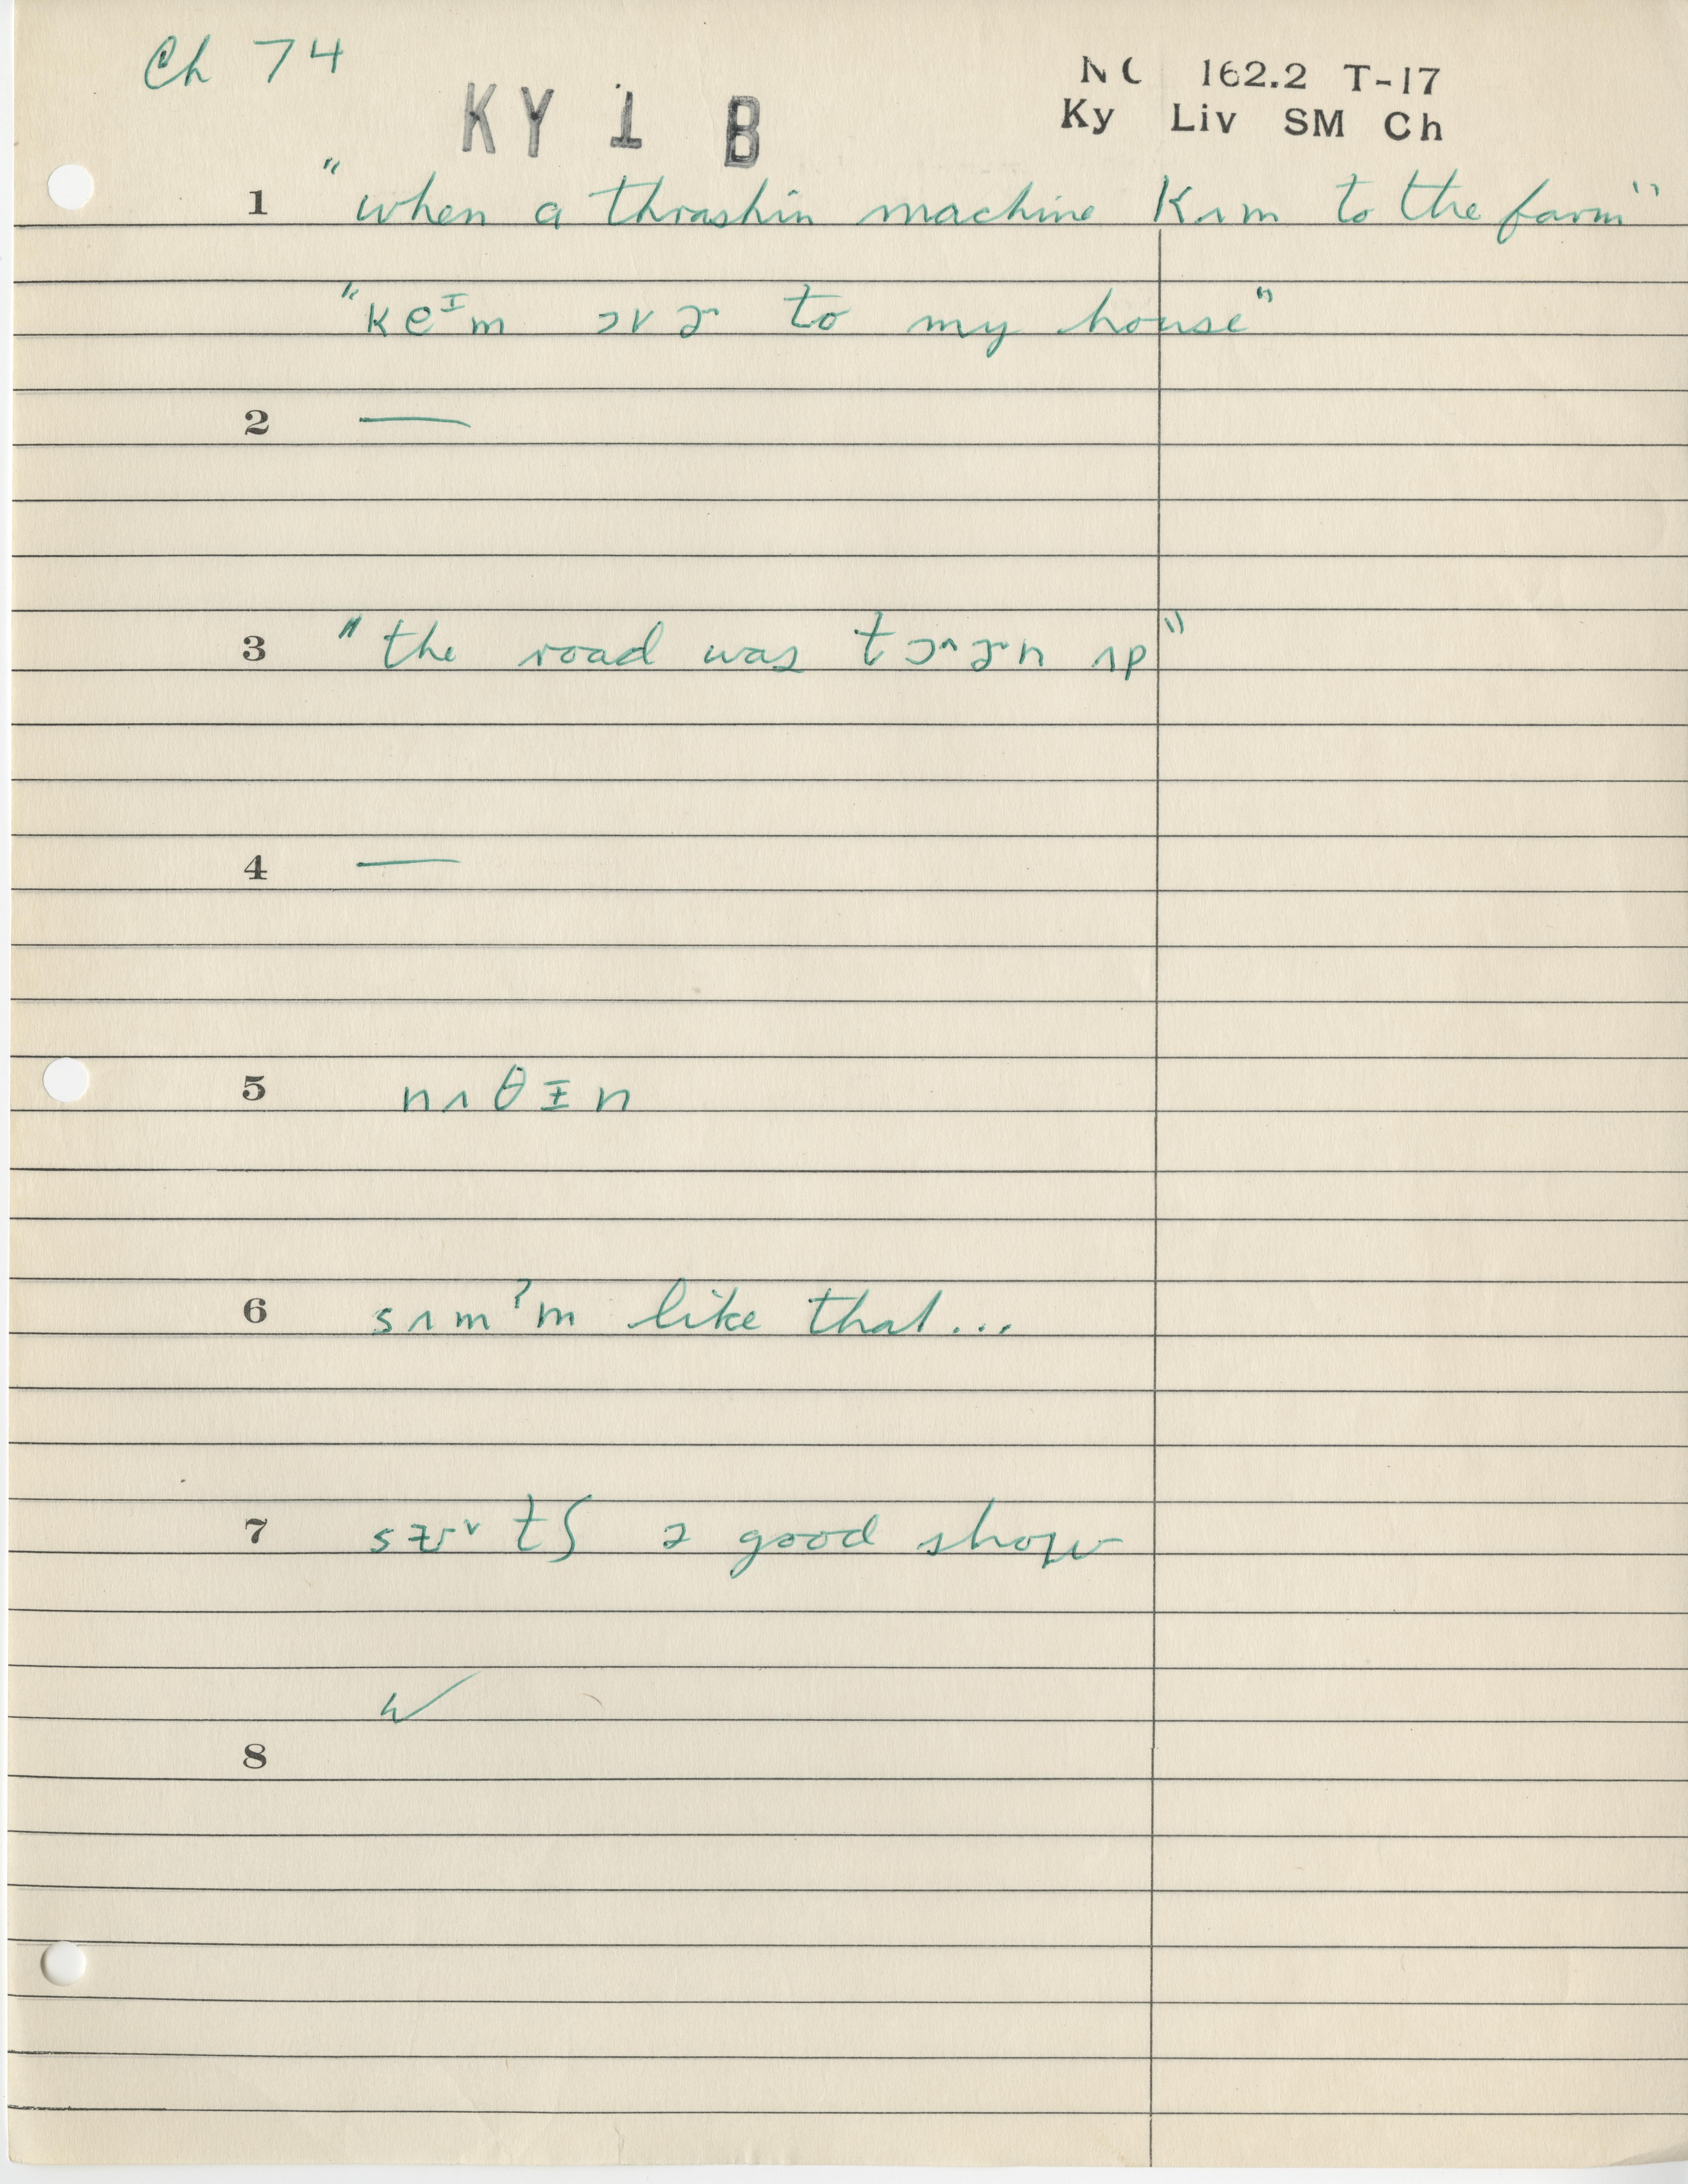 Ch 74
KY 1 B
NC 162.2 T-17
Ky Liv SM Ch
1 "when a thrashin machine kʌm to the farm"
"keᴵm ɔvɚ to my house"
2 —
3 "the road was tɔ^ɚn ʌp"
4 —
5 nʌθɪn
6 sʌmˀm like that...
7 ə good show
✓
8